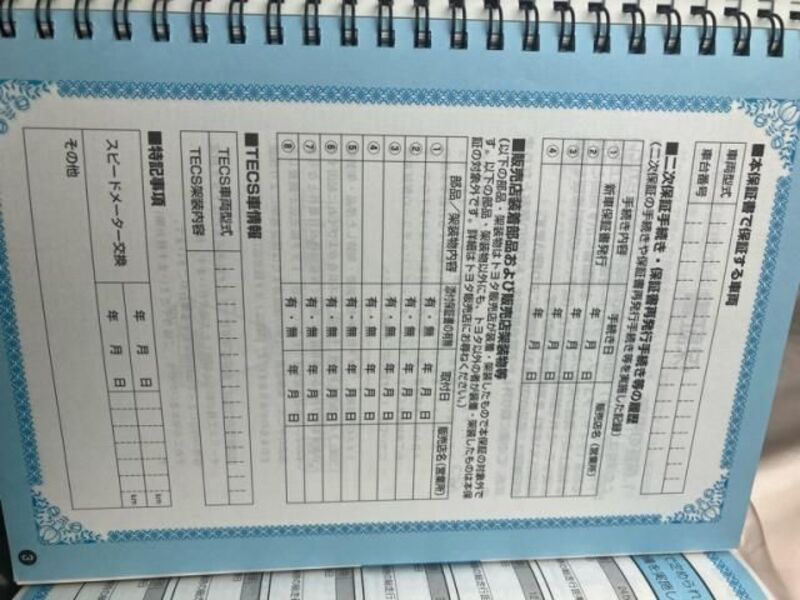 ■本保証書で保証する車両
車両型式
車台番号
■二次保証手続き・保証書再発行手続き等の履歴
(二次保証の手続きや保証書再発行手続き等を実施した記録)
手続き内容 手続き日 販売店名(営業所)
① 新車保証書発行 年 月 日
② 年 月 日
③ 年 月 日
④ 年 月 日
■販売店装着部品および販売店架装物等
(以下の部品・架装物はトヨタ販売店が装着・架装したもので本保証の対象外で
す。以下の部品・架装物以外にも、トヨタ以外の者が装着・架装したものは本保
証の対象外です。詳細はトヨタ販売店にお尋ねください。)
部品/架装物内容 添付保証書の有無 取付日 販売店名(営業所)
① 有・無 年 月 日
② 有・無 年 月 日
③ 有・無 年 月 日
④ 有・無 年 月 日
⑤ 有・無 年 月 日
⑥ 有・無 年 月 日
⑦ 有・無 年 月 日
⑧ 有・無 年 月 日
■TECS車情報
TECS車両型式
TECS架装内容
■特記事項
スピードメーター交換 年 月 日 km
年 月 日 km
その他
3